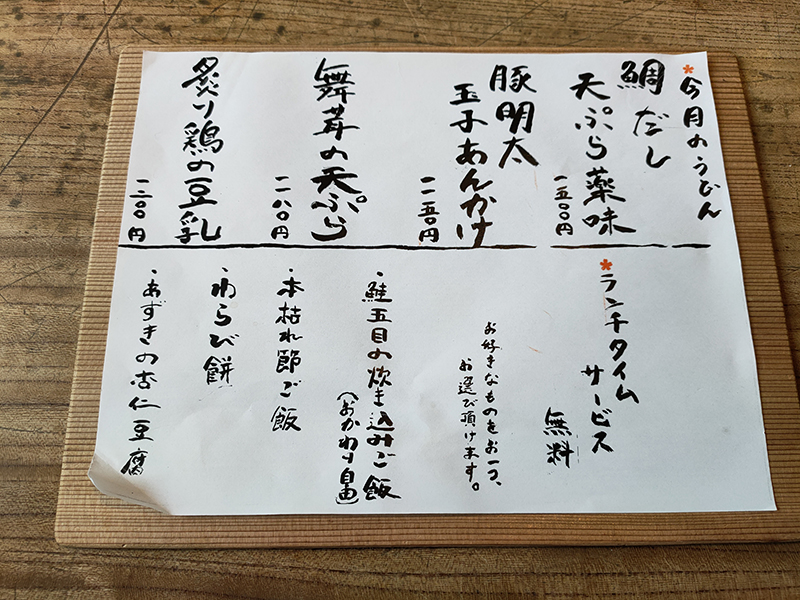 *今月のうどん
鯛だし
天ぷら薬味
一五〇〇円
豚明太
玉子あんかけ
一一五〇円
舞茸の天ぷら
一一八〇円
炙り鶏の豆乳
一二〇〇円
*ランチタイム
サービス
無料
お好きなものをお一つ、
お選び頂けます。
・鮭五目の炊き込みご飯
(おかわり自由)
・本枯れ節ご飯
・わらび餅
・あずきの杏仁豆腐